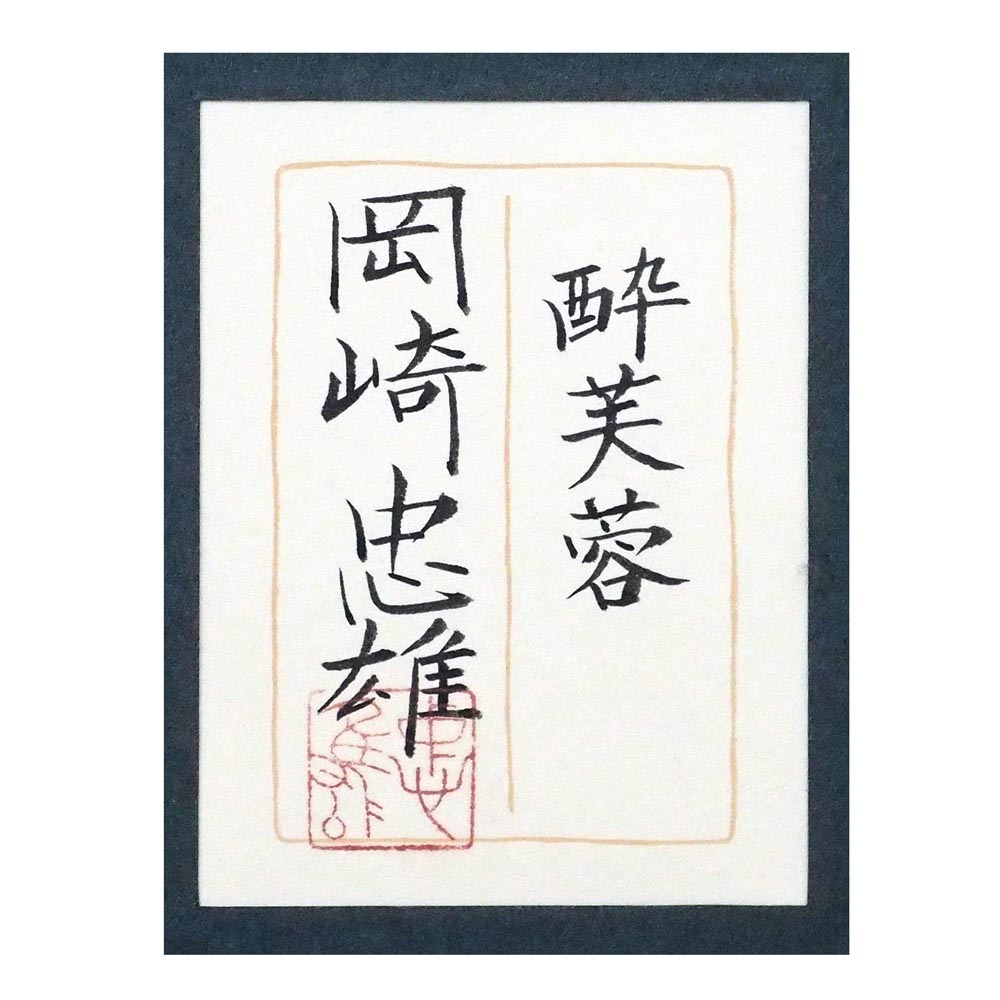 酔芙蓉
岡崎忠雄